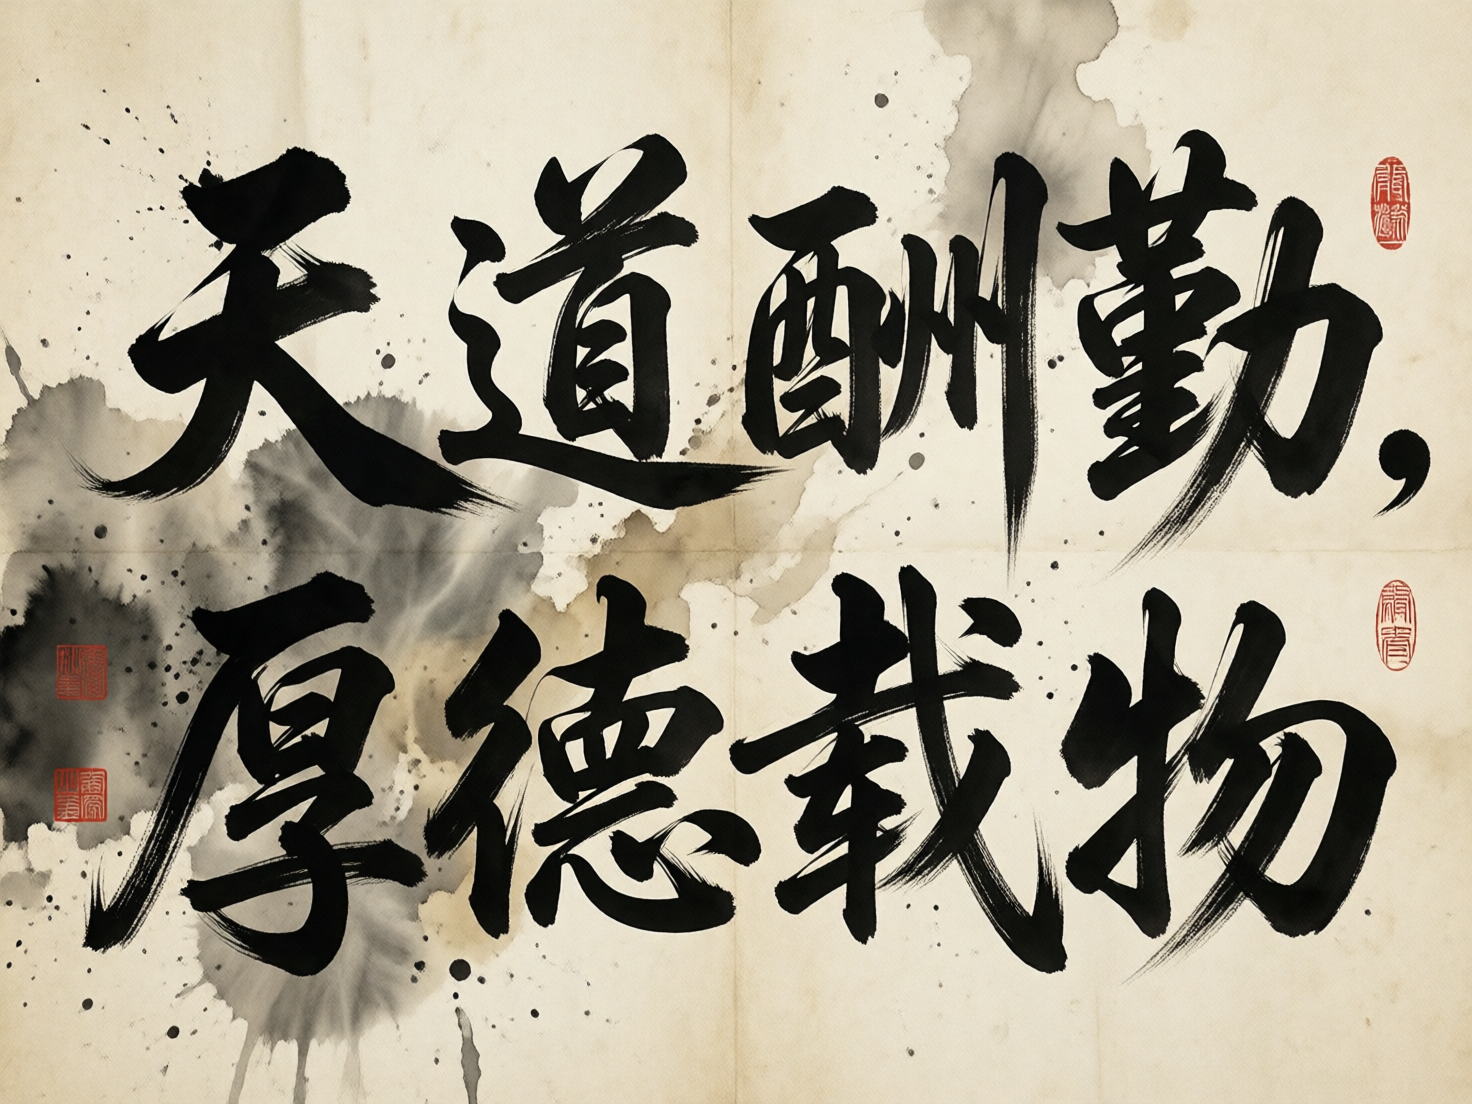 天道酬勤，
厚德载物